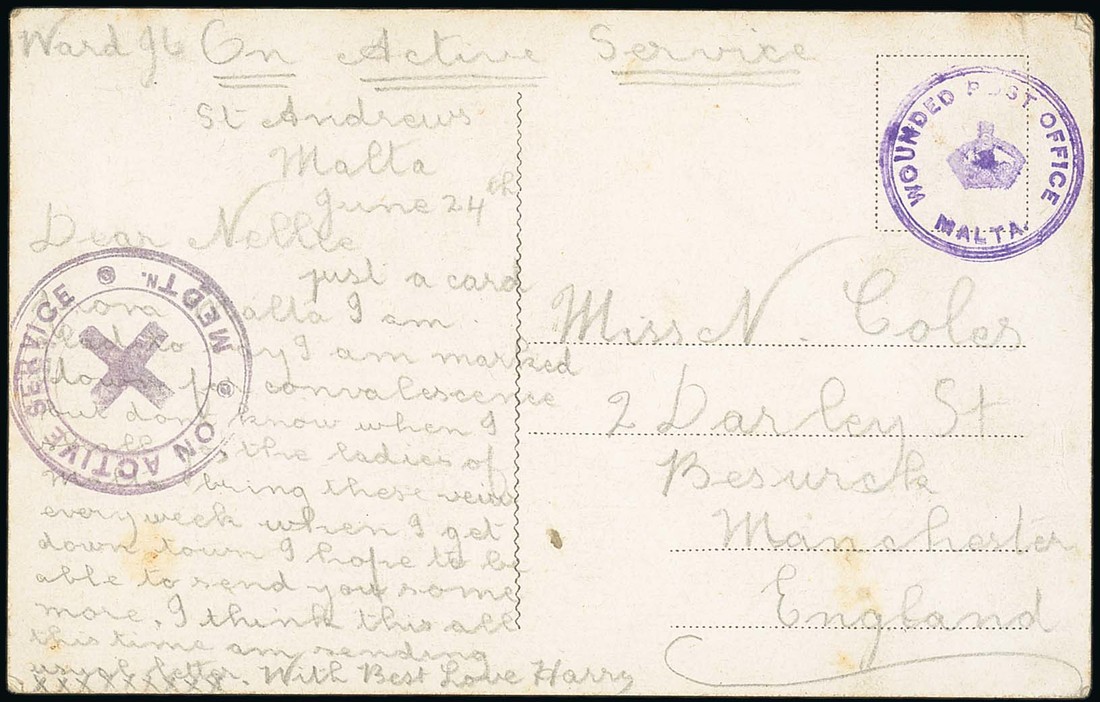 Ward J6 On Active Service
St Andrews
Malta
June 24th
Dear Nellie
just a card
from Malta I am
to say I am marked
down for convalescence
but dont know when I
shall the ladies of
bring these views
every week when I get
down town I hope to be
able to send you some
more. I think this all
this time am sending
usual letter. With Best Love Harry
xxxxxxxxx
Miss N. Coles
2 Darley St
Besurck
Manchester
England
WOUNDED POST OFFICE
MALTA.
ON ACTIVE SERVICE
MEDTN.